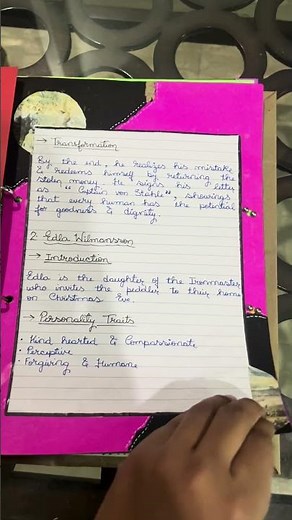 → Transformation
By the end, he realizes his mistake
& redeems himself by returning the
stolen money. He signs his letter
as "Captain von Stahle", showings
that every human has the potential
for goodness & dignity.
2. Edla Wilmansson
→ Introduction
Edla is the daughter of the Ironmaster
who invites the pedler to their home
on Christmas Eve.
→ Personality Traits
• Kind hearted & Compassionate
• Perceptive
• Forgiving & Humane